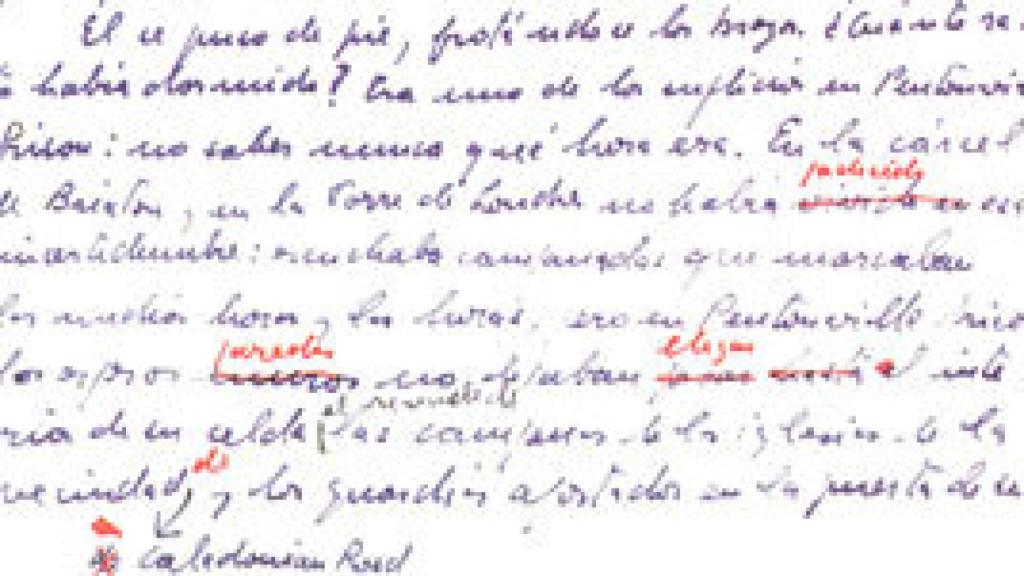 Él se puso de pie, frotándose los brazos. ¿Cuánto ra
había dormido? Era uno de los suplicios en Pentonvi
Prison: no saber nunca qué hora era. En la cárcel
de Brixton y en la Torre de Londres no había
incertidumbre: escuchaba campanadas que marcaban
las medias horas y las horas; pero en Pentonville Priso
paredes
los espesos muros no dejaban el inte
rior de su celda las campanas de las iglesias de la
de
vecindad, y los guardias apostados en la puerta de
Caledonian Road